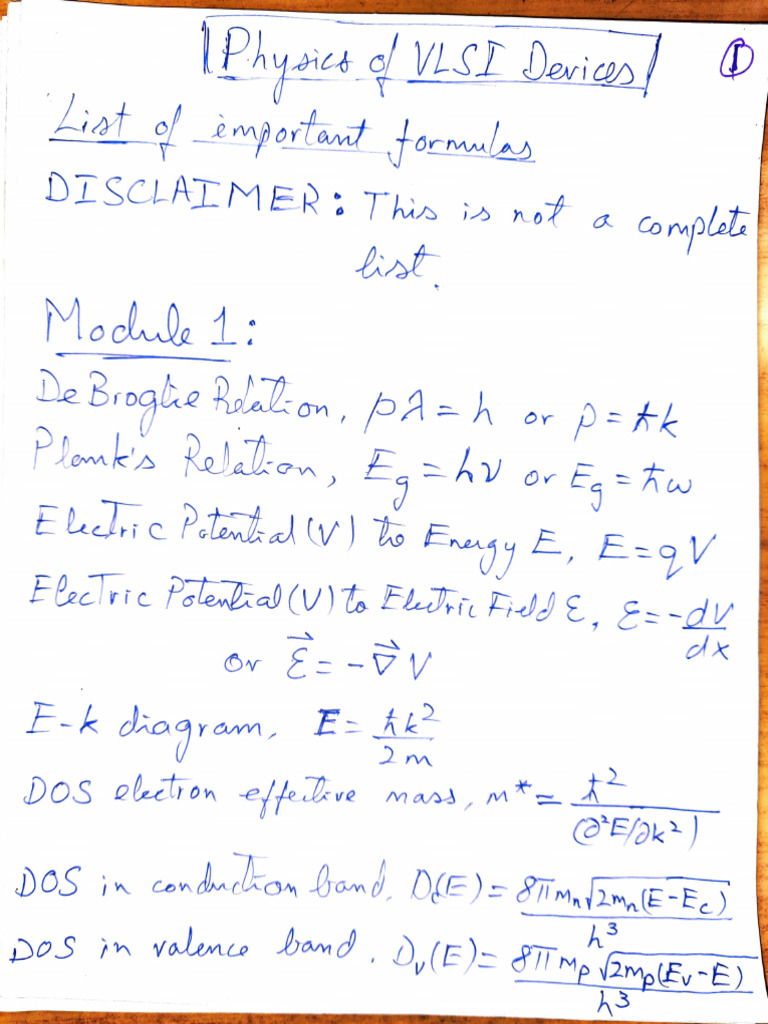 Physics of VLSI Devices
①
List of important formulas
DISCLAIMER: This is not a complete
list.
Module 1:
De Broglie Relation, pλ = h or p = ℏk
Plank's Relation, E_g = hν or E_g = ℏω
Electric Potential (V) to Energy E, E = qV
Electric Potential (V) to Electric Field ℰ, ℰ = -dV/dx
or ℰ⃗ = -∇⃗V
E-k diagram, E = ℏk²/2m
DOS electron effective mass, m* = ℏ²/(∂²E/∂k²)
DOS in conduction band, D_c(E) = 8πm_n√(2m_n(E-E_c))/h³
DOS in valence band. D_v(E) = 8πm_p√(2m_p(E_v-E))/h³